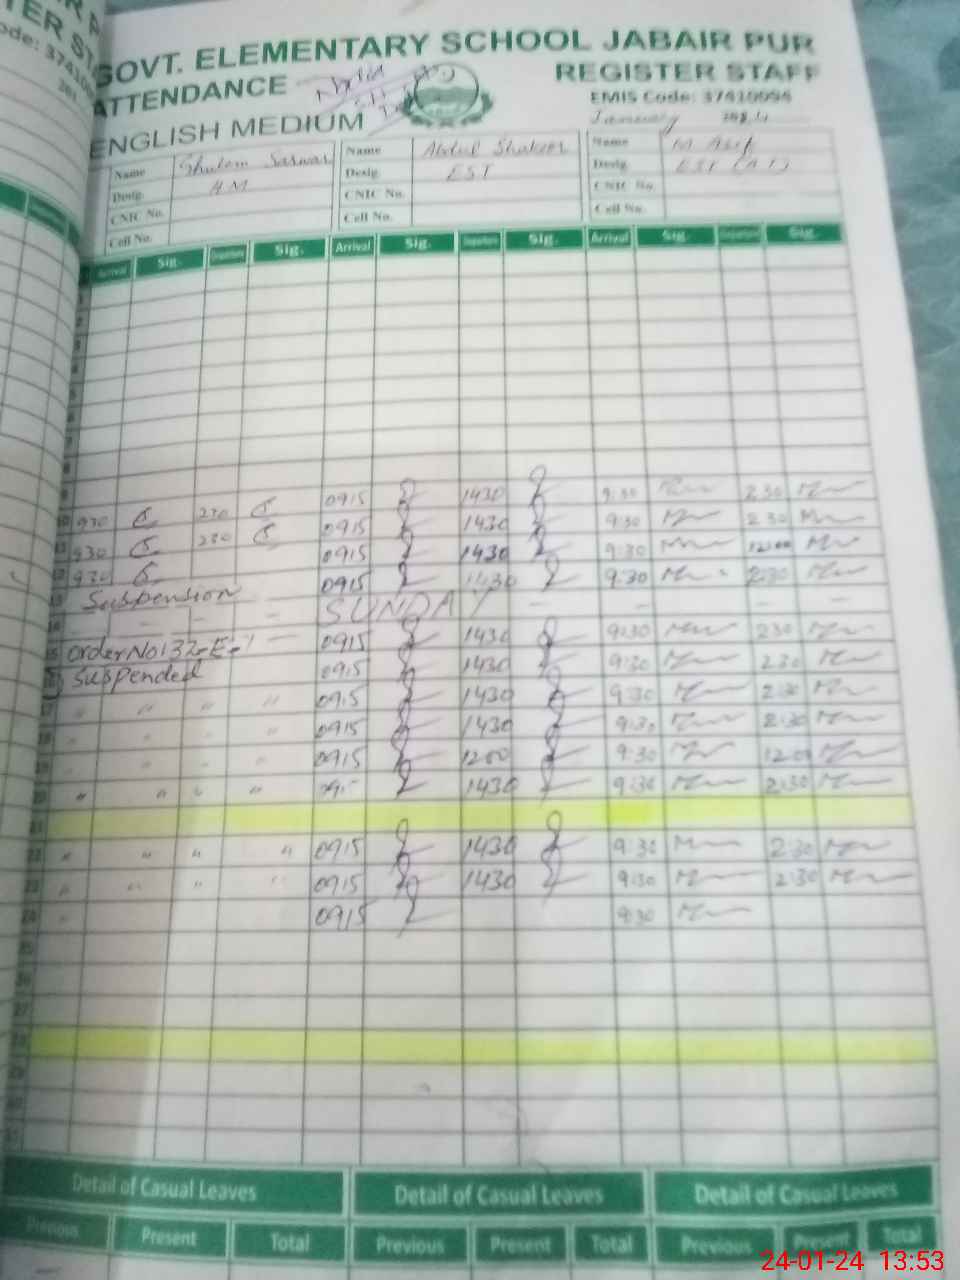 GOVT. ELEMENTARY SCHOOL JABAIR PUR
ATTENDANCE REGISTER STAFF
EMIS Code: 37410094
ENGLISH MEDIUM January
Name Ghulam Sarwar Name Abdul Shakoor Name M Asif
Desig. HM Desig. EST Desig. EST (A.T)
CNIC No. CNIC No. CNIC No.
Cell No. Cell No. Cell No.
Arrival Sig. Departure Sig. Arrival Sig. Departure Sig. Arrival Sig. Departure Sig.
0915 1430 9:30 2:30
10 930 230 0915 1430 930 230
11 930 230 0915 1430 9:30 12:00
12 930 0915 1430 9:30 2:30
13 Suspension SUNDAY - - - -
14 - - - - 0915 1430 9:30 230
15 order No 132-E-1 0915 1430 9:30 230
16 Suspended 0915 1430 9:30 2:30
17 " " " " 0915 1430 9:30 2:30
18 " " " 0915 1200 9:30 12:00
19 " " " 0915 1430 9:30 2:30
20 " " " "
21
22 " " " " 0915 1430 9:30 2:30
23 " " " " 0915 1430 9:30 2:30
24 " 0915 9:30
25
26
27
28
29
30
31
Detail of Casual Leaves Detail of Casual Leaves Detail of Casual Leaves
Previous Present Total Previous Present Total Previous Present Total
24-01-24 13:53